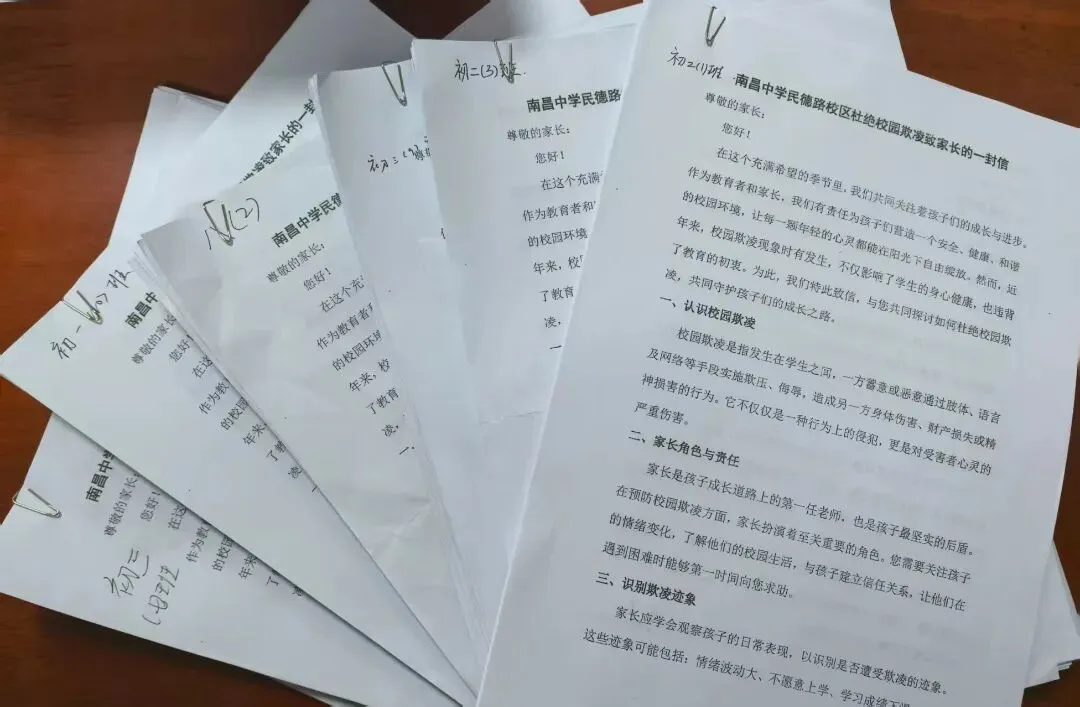 初二(1)班
南昌中学民德路校区杜绝校园欺凌致家长的一封信
尊敬的家长：
您好！
在这个充满希望的季节里，我们共同关注着孩子们的成长与进步。
作为教育者和家长，我们有责任为孩子们营造一个安全、健康、和谐
的校园环境，让每一颗年轻的心灵都能在阳光下自由绽放。然而，近
年来，校园欺凌现象时有发生，不仅影响了学生的身心健康，也违背
了教育的初衷。为此，我们特此致信，与您共同探讨如何杜绝校园欺
凌，共同守护孩子们的成长之路。
一、认识校园欺凌
校园欺凌是指发生在学生之间，一方蓄意或恶意通过肢体、语言
及网络等手段实施欺压、侮辱，造成另一方身体伤害、财产损失或精
神损害的行为。它不仅仅是一种行为上的侵犯，更是对受害者心灵的
严重伤害。
二、家长角色与责任
家长是孩子成长道路上的第一任老师，也是孩子最坚实的后盾。
在预防校园欺凌方面，家长扮演着至关重要的角色。您需要关注孩子
的情绪变化，了解他们的校园生活，与孩子建立信任关系，让他们在
遇到困难时能够第一时间向您求助。
三、识别欺凌迹象
家长应学会观察孩子的日常表现，以识别是否遭受欺凌的迹象。
这些迹象可能包括：情绪波动大、不愿意上学、学习成绩下
初二(3)班
南昌中学民德路
尊敬的家长：
您好！
在这个充满
作为教育者和
的校园环境
年来，校
了教育
凌，
一
初三
凌致家长的一封
(2)
南昌中学民德
尊敬的家长：
您好！
在这个充
作为教育者
的校园环
年来，校
了教育
凌，
一
初一
班
南昌中
尊敬的家长
您好
在这
作为教
的校园
年来
了
凌
初三
班
南昌中学
尊敬的家长：
您好！
在这
作为教
的校园
年来
了